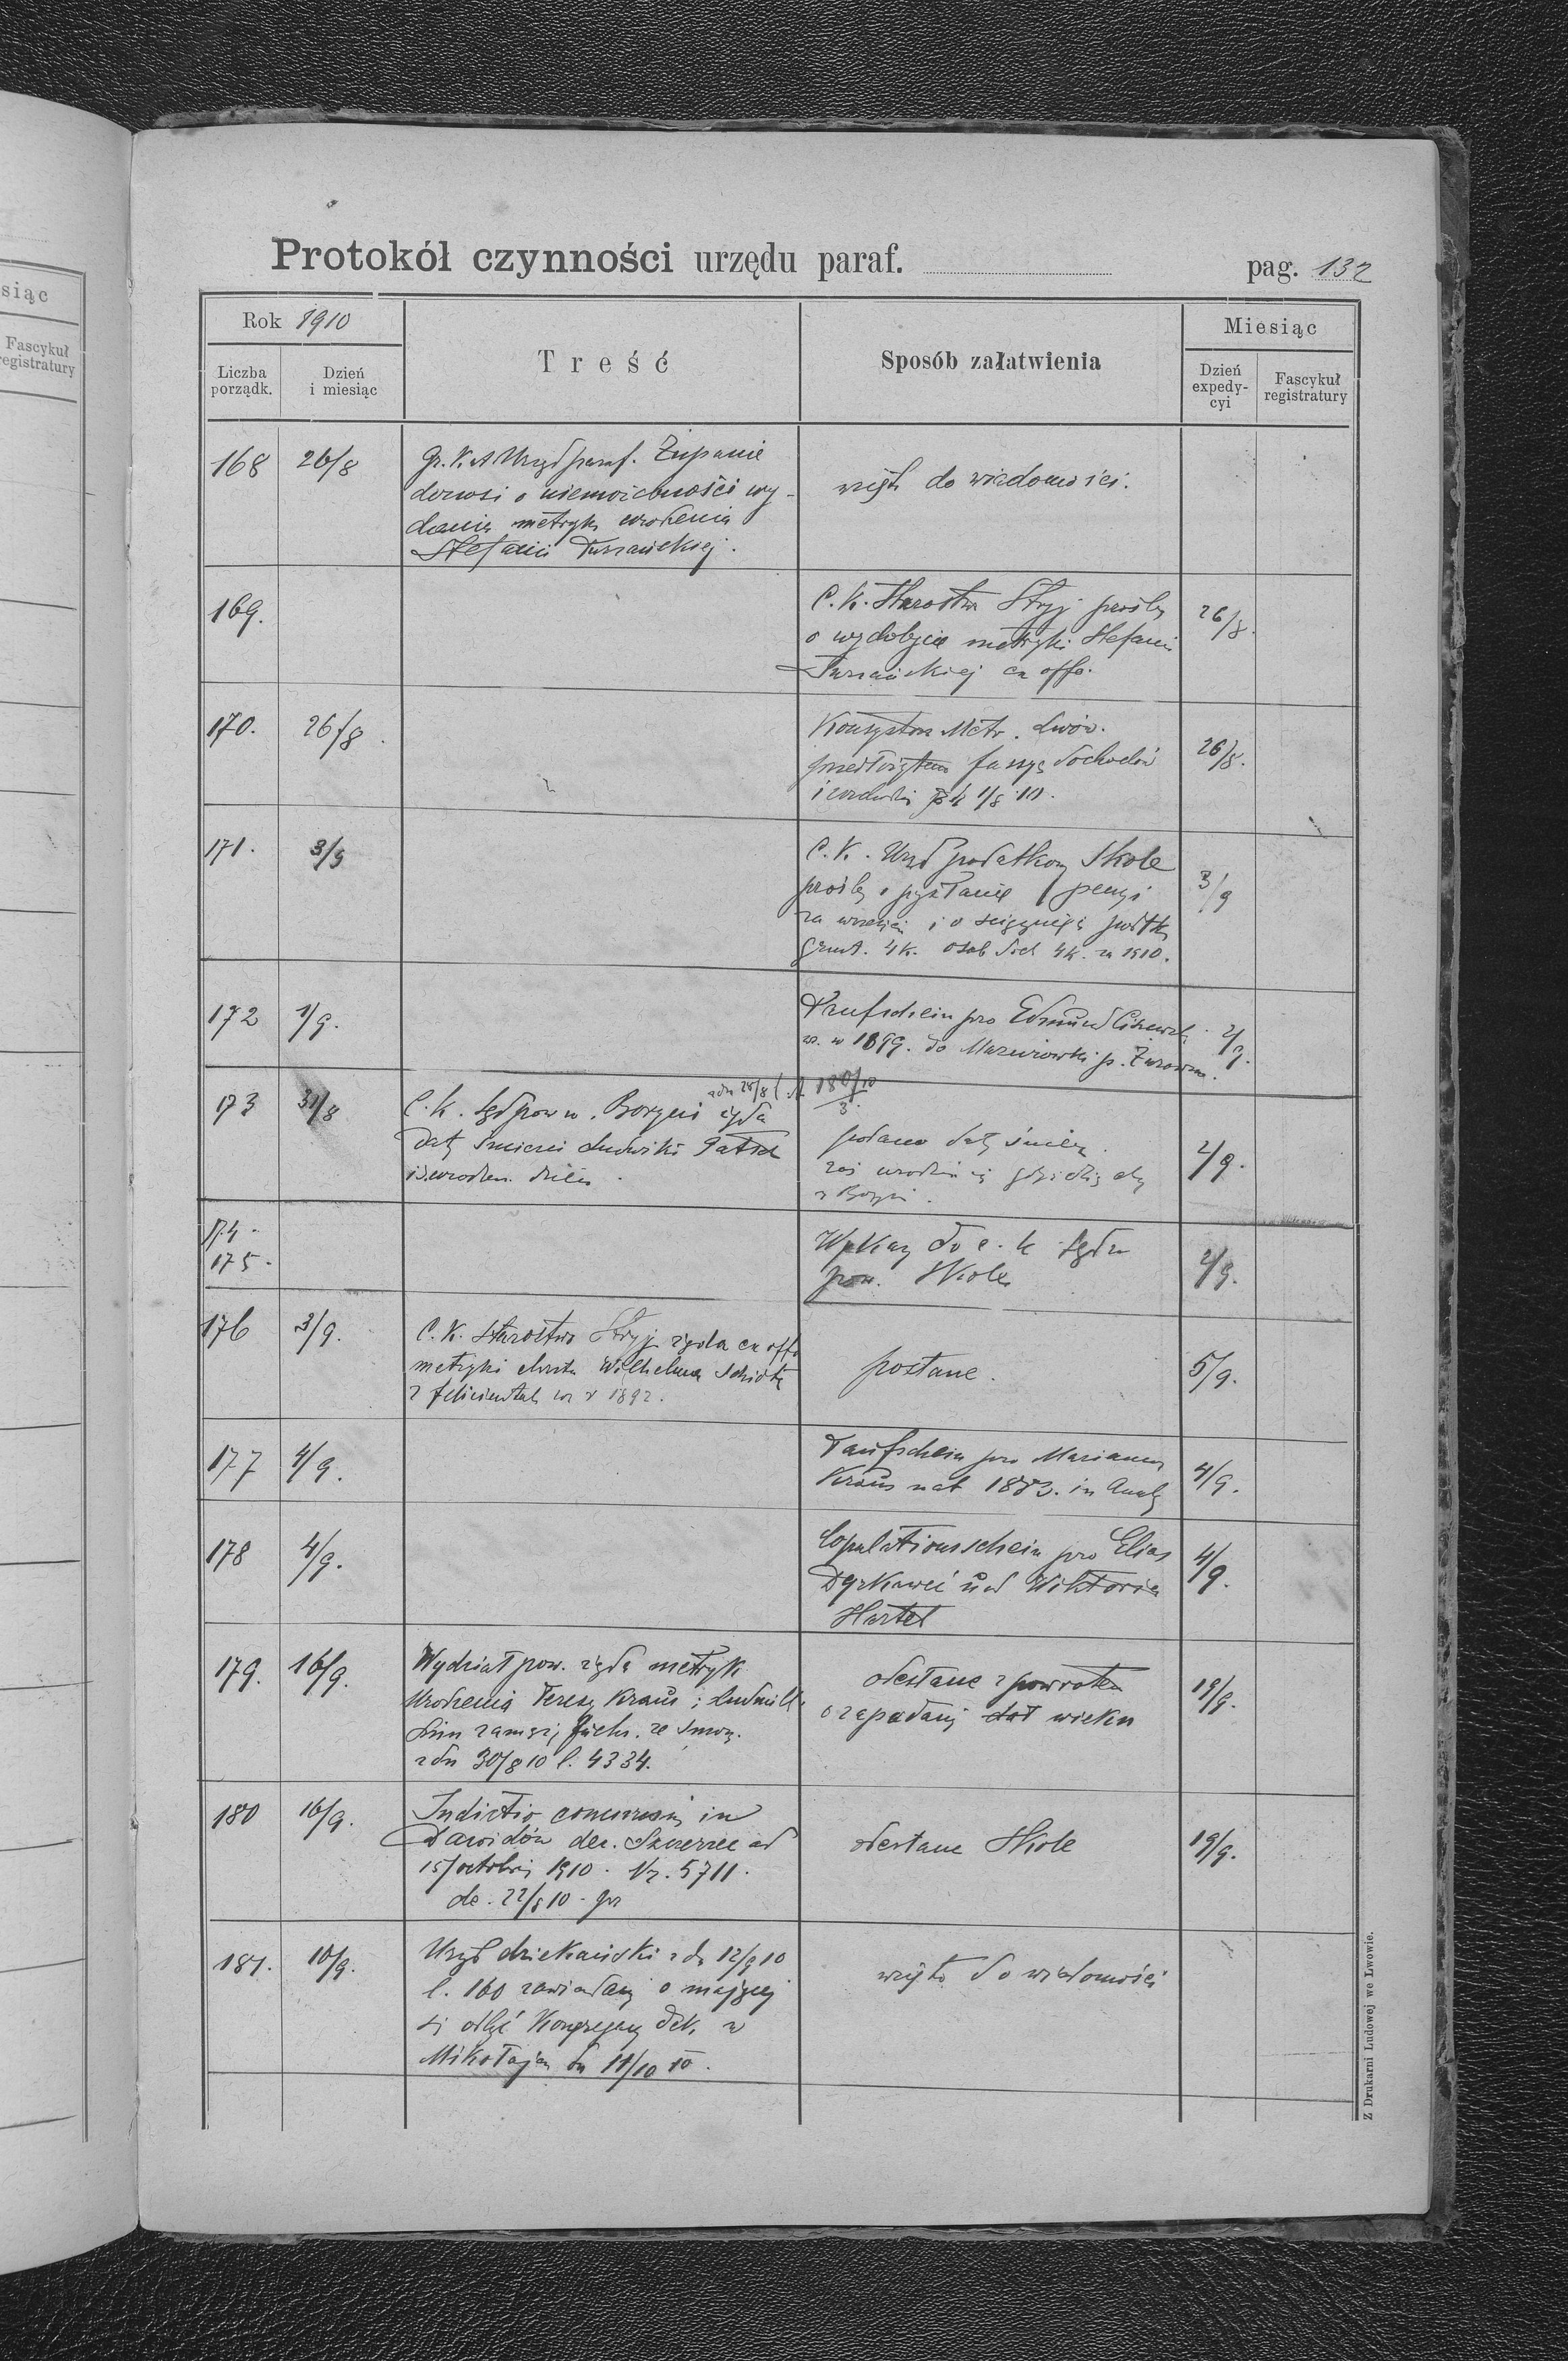 siąc
Fascykuł
registratury
Protokół czynności urzędu paraf.
pag. 132
Rok 1910
Miesiąc
Liczba porządk.
Dzień i miesiąc
Treść
Sposób załatwienia
Dzień expedy-cyi
Fascykuł registratury
168 26/8
Gr. Kat Urząd paraf. Żupanie
donosi o niemożebności wy-
dania metryki urodzenia
Stefanii Turzańskiej.
wzięto do wiadomości.
169.
C. K. Starostwo Stryj prośba
o wydobycie metryki Stefanii
Turzańskiej ex offo.
26/8.
170. 26/8.
Konsystorz Metr. Lwów.
przedłożyłem fassyę dochodów
1/8 10.
26/8.
171. 3/9
C. K. Urząd podatkowy Skole
prośba o przysłanie pensyi
za wrzesień i o ściągnięcie podatku
grunt. 4 K. osob doch 4 K. za 1910.
3/9
172 1/9.
Taufschein pro Edmund
w 1899. do p. Żurawno.
2/9.
173 31/8
C. K. Sąd pow w. Borynia żąda
z dn 25/8 180/10
3.
daty śmierci Ludwiki
i urodzen. dzieci.
podano datę śmierci
zaś urodzin
z Boryni.
2/9.
174.
175.
Wykazy do c. k. Sądu
pow. Skole
2/9.
176 3/9.
C. K. Starostwo Stryj żąda ex offo
metryki chrztu Wilhelma
z Felicienthal ur r 1892.
posłane.
5/9.
177 4/9.
Taufschein pro Marianna
Kraus nat 1883. in
4/9.
178 4/9.
Copulationsschein pro Elias
Dyrkaweć und Wiktoria
Hartel
4/9.
179. 16/9.
Wydział pow. żąda metryk
Urodzenia Teresy Kraus i
zamęż. Fuchs. ze Smorz.
z dn 30/8 10 l. 4334.
odesłane z powrotem
o zapodanie dat wieku
19/9.
180 16/9.
Indictio concursus in
Dawidów dec. Szczerzec ad
15/octobris 1910. Nr. 5711.
de. 22/8 10.
odesłane Skole
19/9.
181. 18/9.
Urząd dziekański z dn 12/9 10
l. 160 zawiadamia o mającej
się odbyć Kongregacyi Dek. w
Mikołajow dn 11/10 10.
wzięto do wiadomości
Z Drukarni Ludowej we Lwowie.